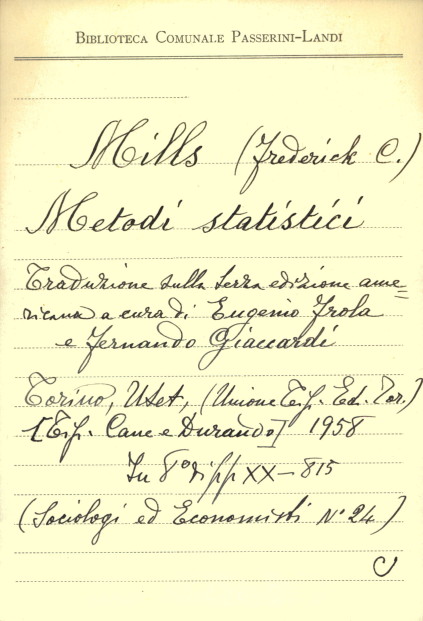 BIBLIOTECA COMUNALE PASSERINI-LANDI
Mills (Frederick C.)
Metodi statistici
Traduzione sulla terza edizione ame=
ricana a cura di Eugenio Frola
e Fernando Giaccardi
Torino, Utet, (Unione Tip. Ed. Tor.)
[Tip. Cane e Durando] 1958
In 8° di pp XX-815
(Sociologi ed Economisti N° 24)